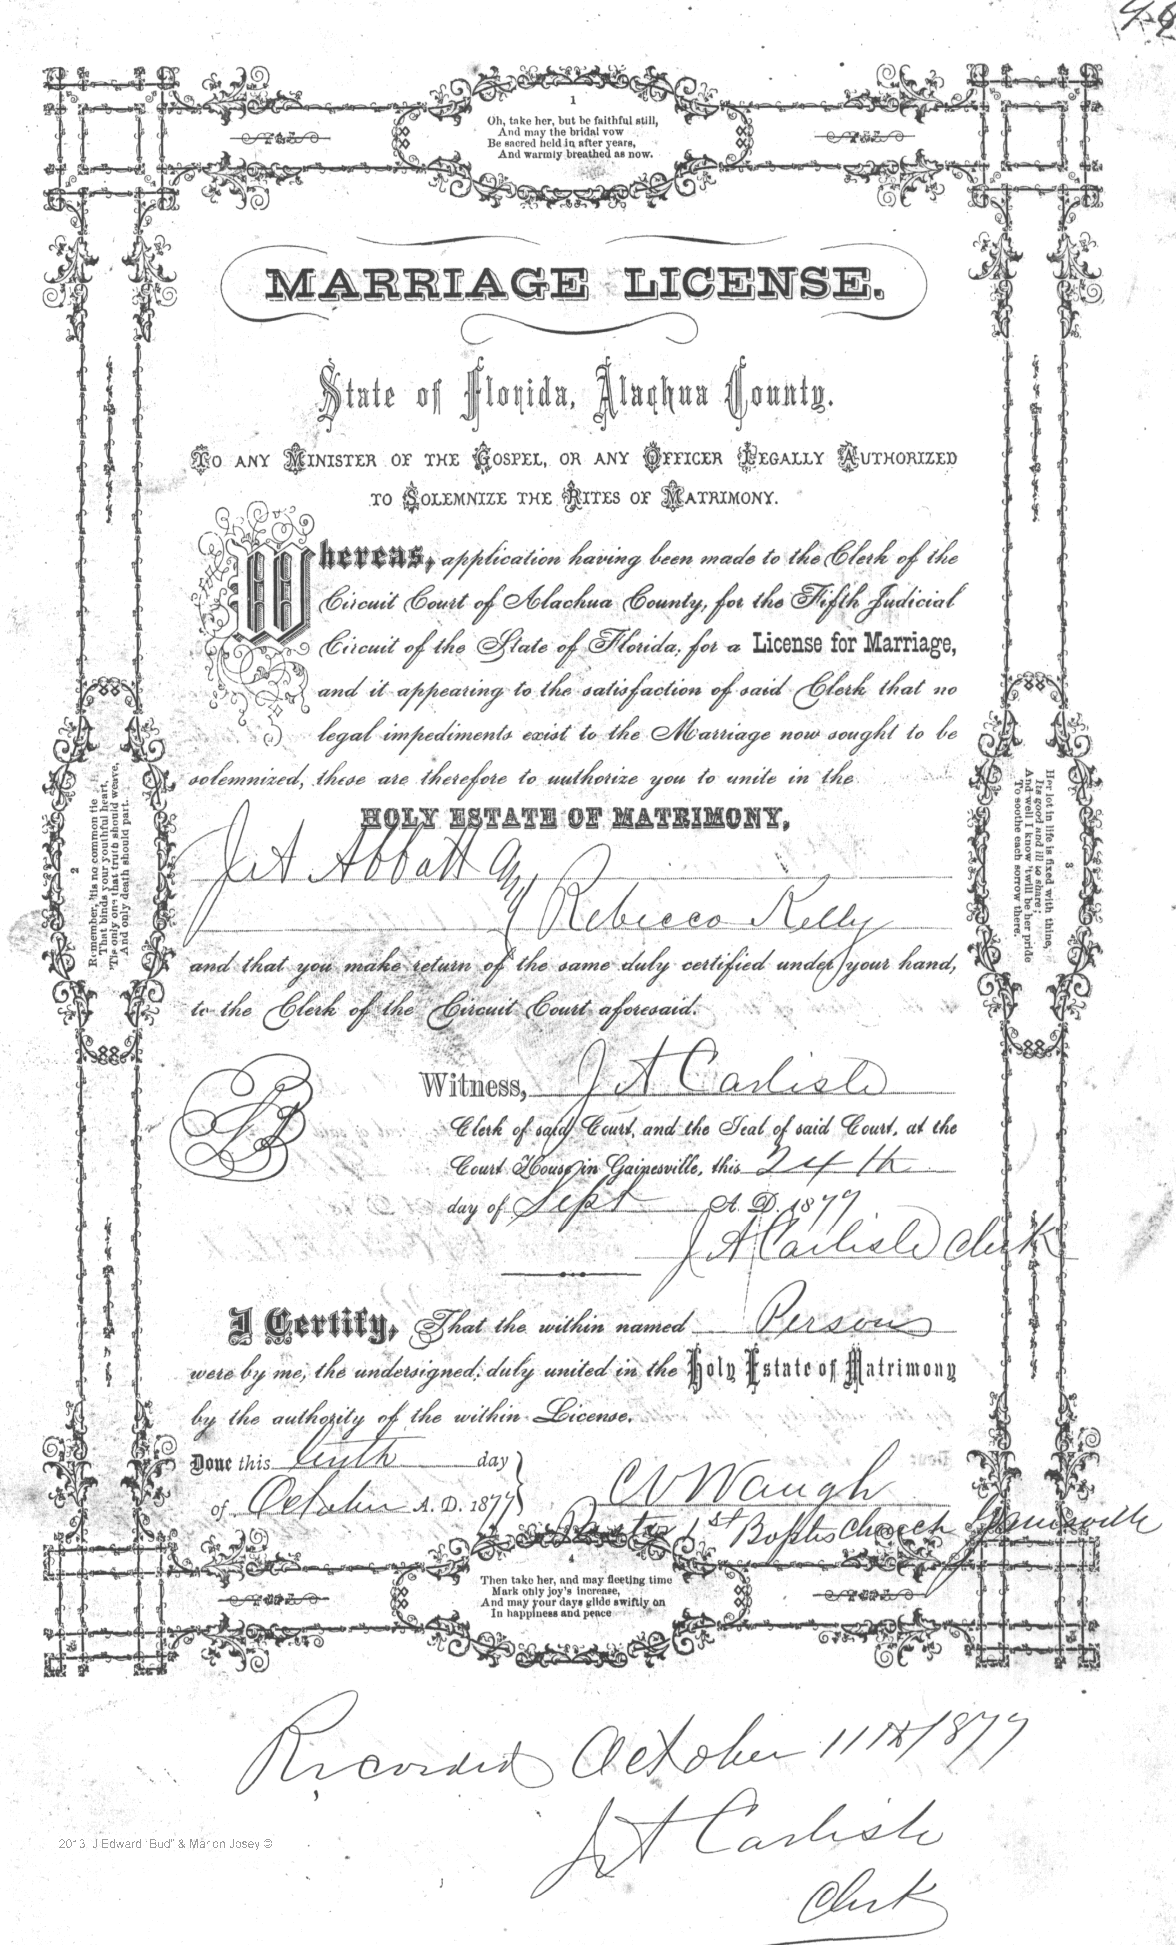 1
Oh, take her, but be faithful still,
And may the bridal vow
Be sacred held in after years,
And warmly breathed as now.
MARRIAGE LICENSE.
State of Florida, Alachua County.
TO ANY MINISTER OF THE GOSPEL, OR ANY OFFICER LEGALLY AUTHORIZED
TO SOLEMNIZE THE RITES OF MATRIMONY.
Whereas, application having been made to the Clerk of the
Circuit Court of Alachua County, for the Fifth Judicial
Circuit of the State of Florida, for a License for Marriage,
and it appearing to the satisfaction of said Clerk that no
legal impediments exist to the Marriage now sought to be
solemnized, these are therefore to authorize you to unite in the
HOLY ESTATE OF MATRIMONY,
J A Abbott and
Rebecco Kelly
and that you make return of the same duly certified under your hand,
to the Clerk of the Circuit Court aforesaid.
2
Remember, 'tis no common tie
That binds your youthful heart,
'Tis only one that truth should weave,
And only death should part.
3
Her lot in life is fixed with thine,
Its good and ill to share;
And well I know 'twill be her pride
To soothe each sorrow there.
Witness, J A Carlisle
Clerk of said Court, and the Seal of said Court, at the
Court House in Gainesville, this 24th
day of Sept A. D. 1877
J A Carlisle Clerk
LS
I Certify, That the within named Persons
were by me, the undersigned, duly united in the Holy Estate of Matrimony
by the authority of the within License.
Done this tenth day
of October A. D. 1877
C V Waugh
Pastor 1st Baptis Church Gainesville
4
Then take her, and may fleeting time
Mark only joy's increase,
And may your days glide swiftly on
In happiness and peace
Recorded October 11th 1877
J A Carlisle
Clerk
2013 J Edward "Bud" & Marion Josey ©